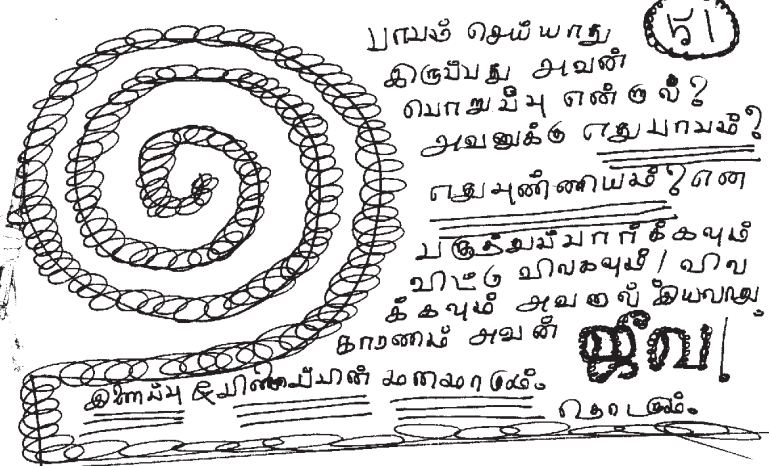 பாவம் செய்யாது
51
இருப்பது அவன்
பொறுப்பு என்றால்?
அவனுக்கு எது பாவம்?
எது புண்ணியம்? என
பகுத்துப்பார்க்கவும்
விட்டு விலகவும் / வில
க்கவும் அவனால் இயலாது
காரணம் அவன் ஜீவ!
இணைப்பு & பிணைப்பின் மனமாகும்.
தொடரும்.